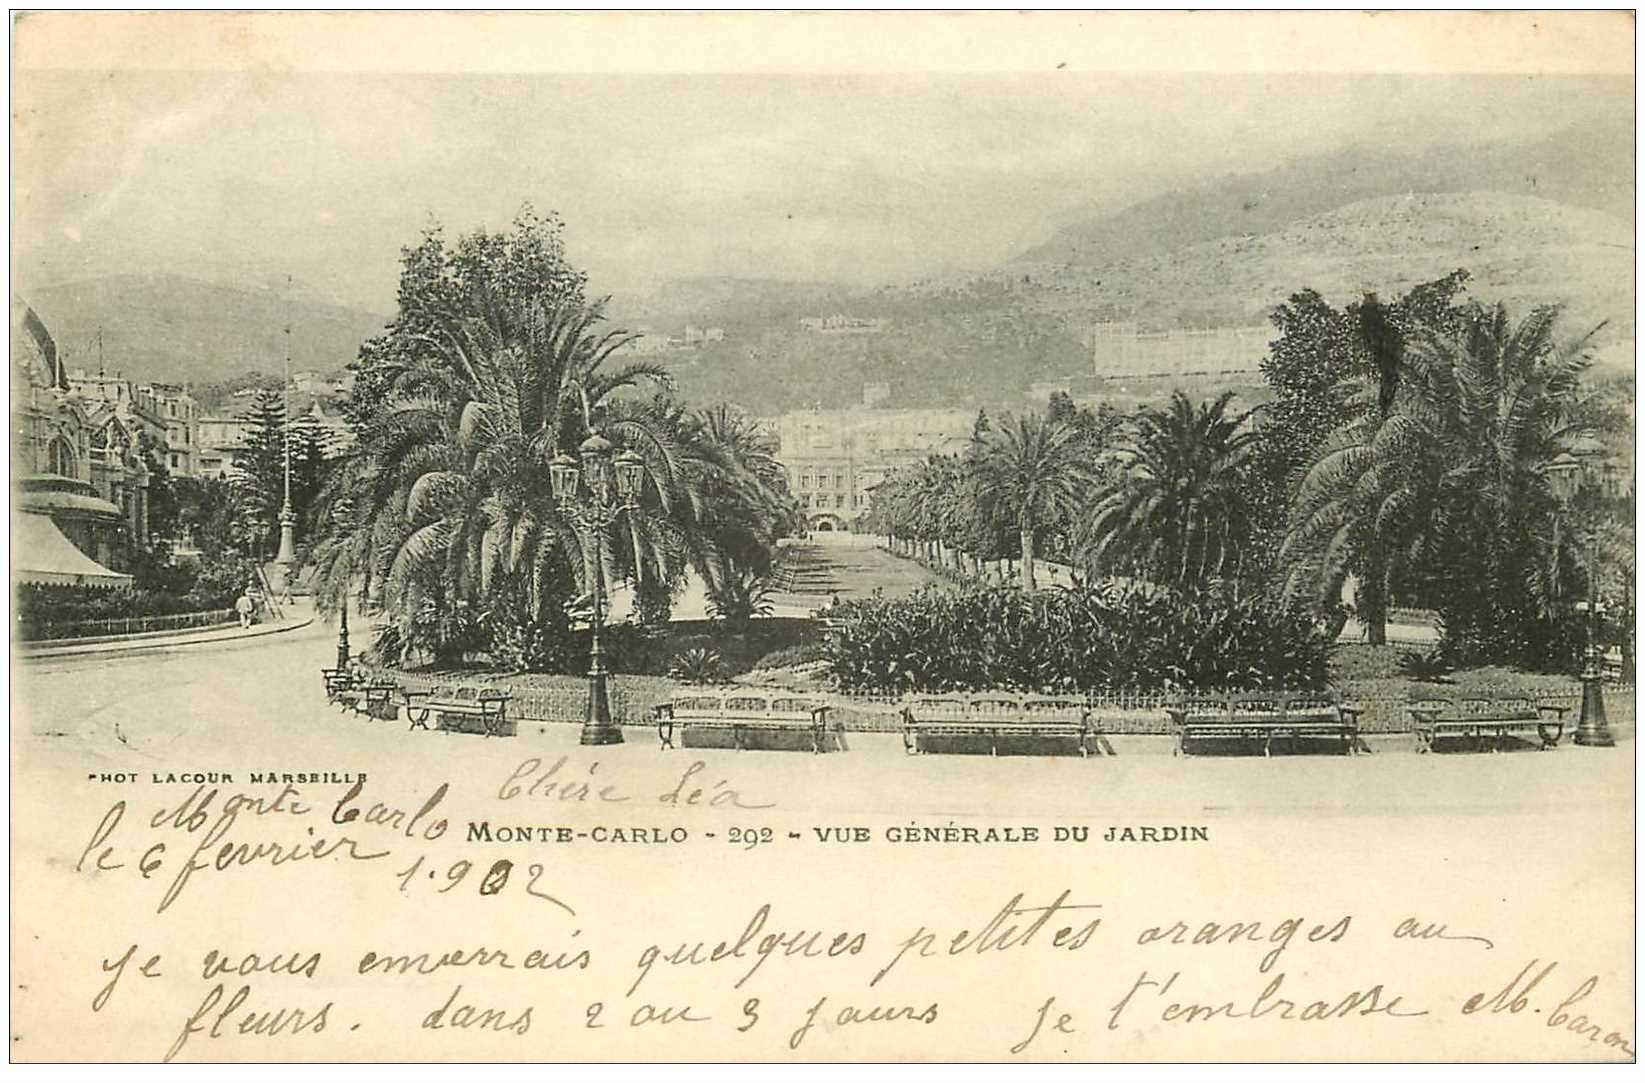 PHOT LACOUR MARSEILLE
Chére Léa
Monte Carlo
MONTE-CARLO - 292 - VUE GÉNÉRALE DU JARDIN
le 6 fevrier
1.902
je vous enverrais quelques petites oranges au
fleurs. dans 2 ou 3 jours je t'embrasse M. Caron